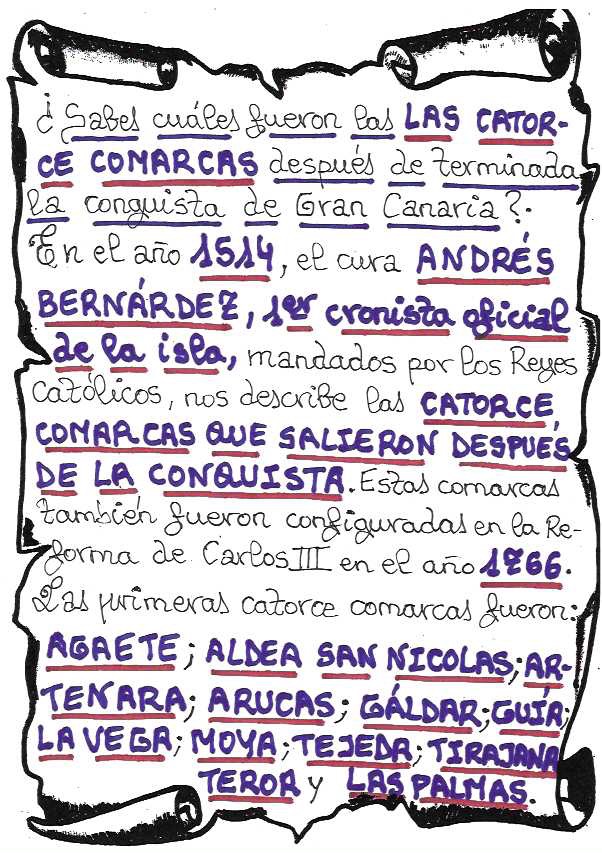 ¿Sabes cuáles fueron las LAS CATOR-
CE COMARCAS después de terminada
la conquista de Gran Canaria?.
En el año 1514, el cura ANDRÉS
BERNÁRDEZ, 1er cronista oficial
de la isla, mandados por los Reyes
católicos, nos describe las CATORCE
COMARCAS QUE SALIERON DESPUÉS
DE LA CONQUISTA. Estas comarcas
también fueron configuradas en la Re-
forma de Carlos III en el año 1766.
Las primeras catorce comarcas fueron:
AGAETE; ALDEA SAN NICOLAS; AR-
TENARA; ARUCAS; GÁLDAR; GUÍA;
LA VEGA; MOYA; TEJEDA; TIRAJANA
TEROR y LAS PALMAS.